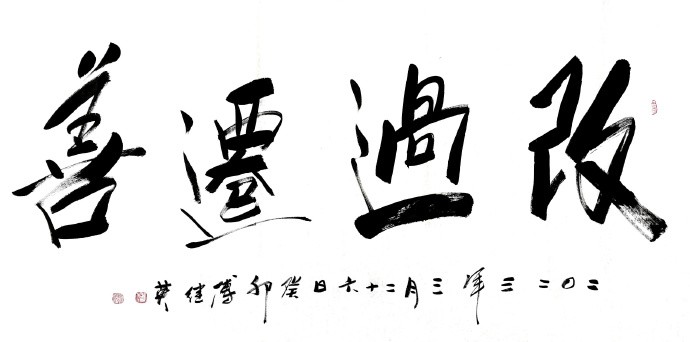 改過遷善
二〇二三年三月二十六日癸卯傅继英